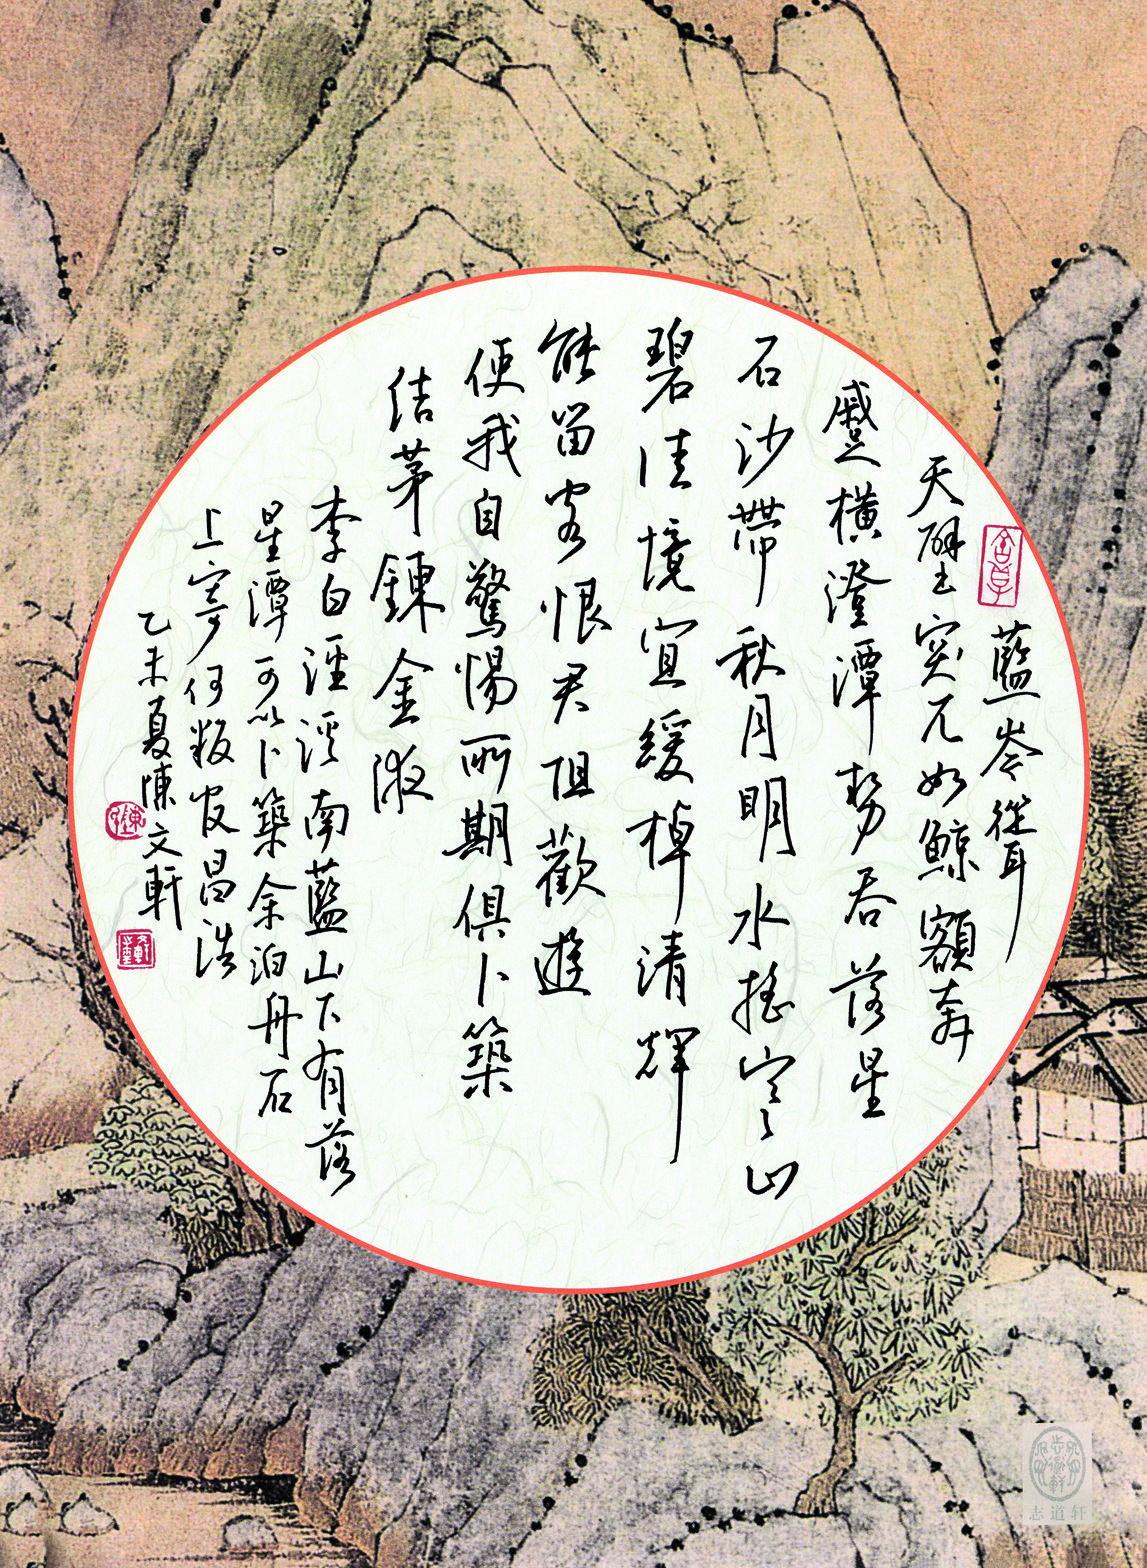 藍岑聳
天壁突兀如鯨額奔
蹙橫澄潭勢吞落星
石沙帶秋月明水搖寒山
碧佳境宜緩棹清輝
能留客恨君阻歡遊
使我自驚惕所期俱卜築
結茅鍊金液
李白涇溪南藍山下有落
星潭可以卜築余泊舟石
上寄何叛官昌浩
乙未夏陳文軒
志道轩